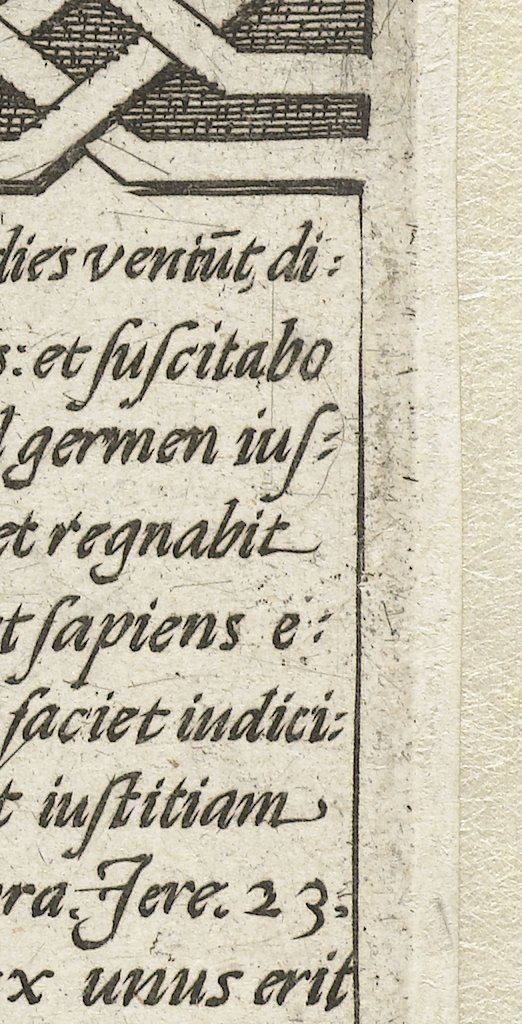 dies veniūt, di:
s: et ſuſcitabo
germen iuſ:
et regnabit
ſapiens e:
faciet iudici:
iuſtitiam
rra. Jere. 23.
x unus erit